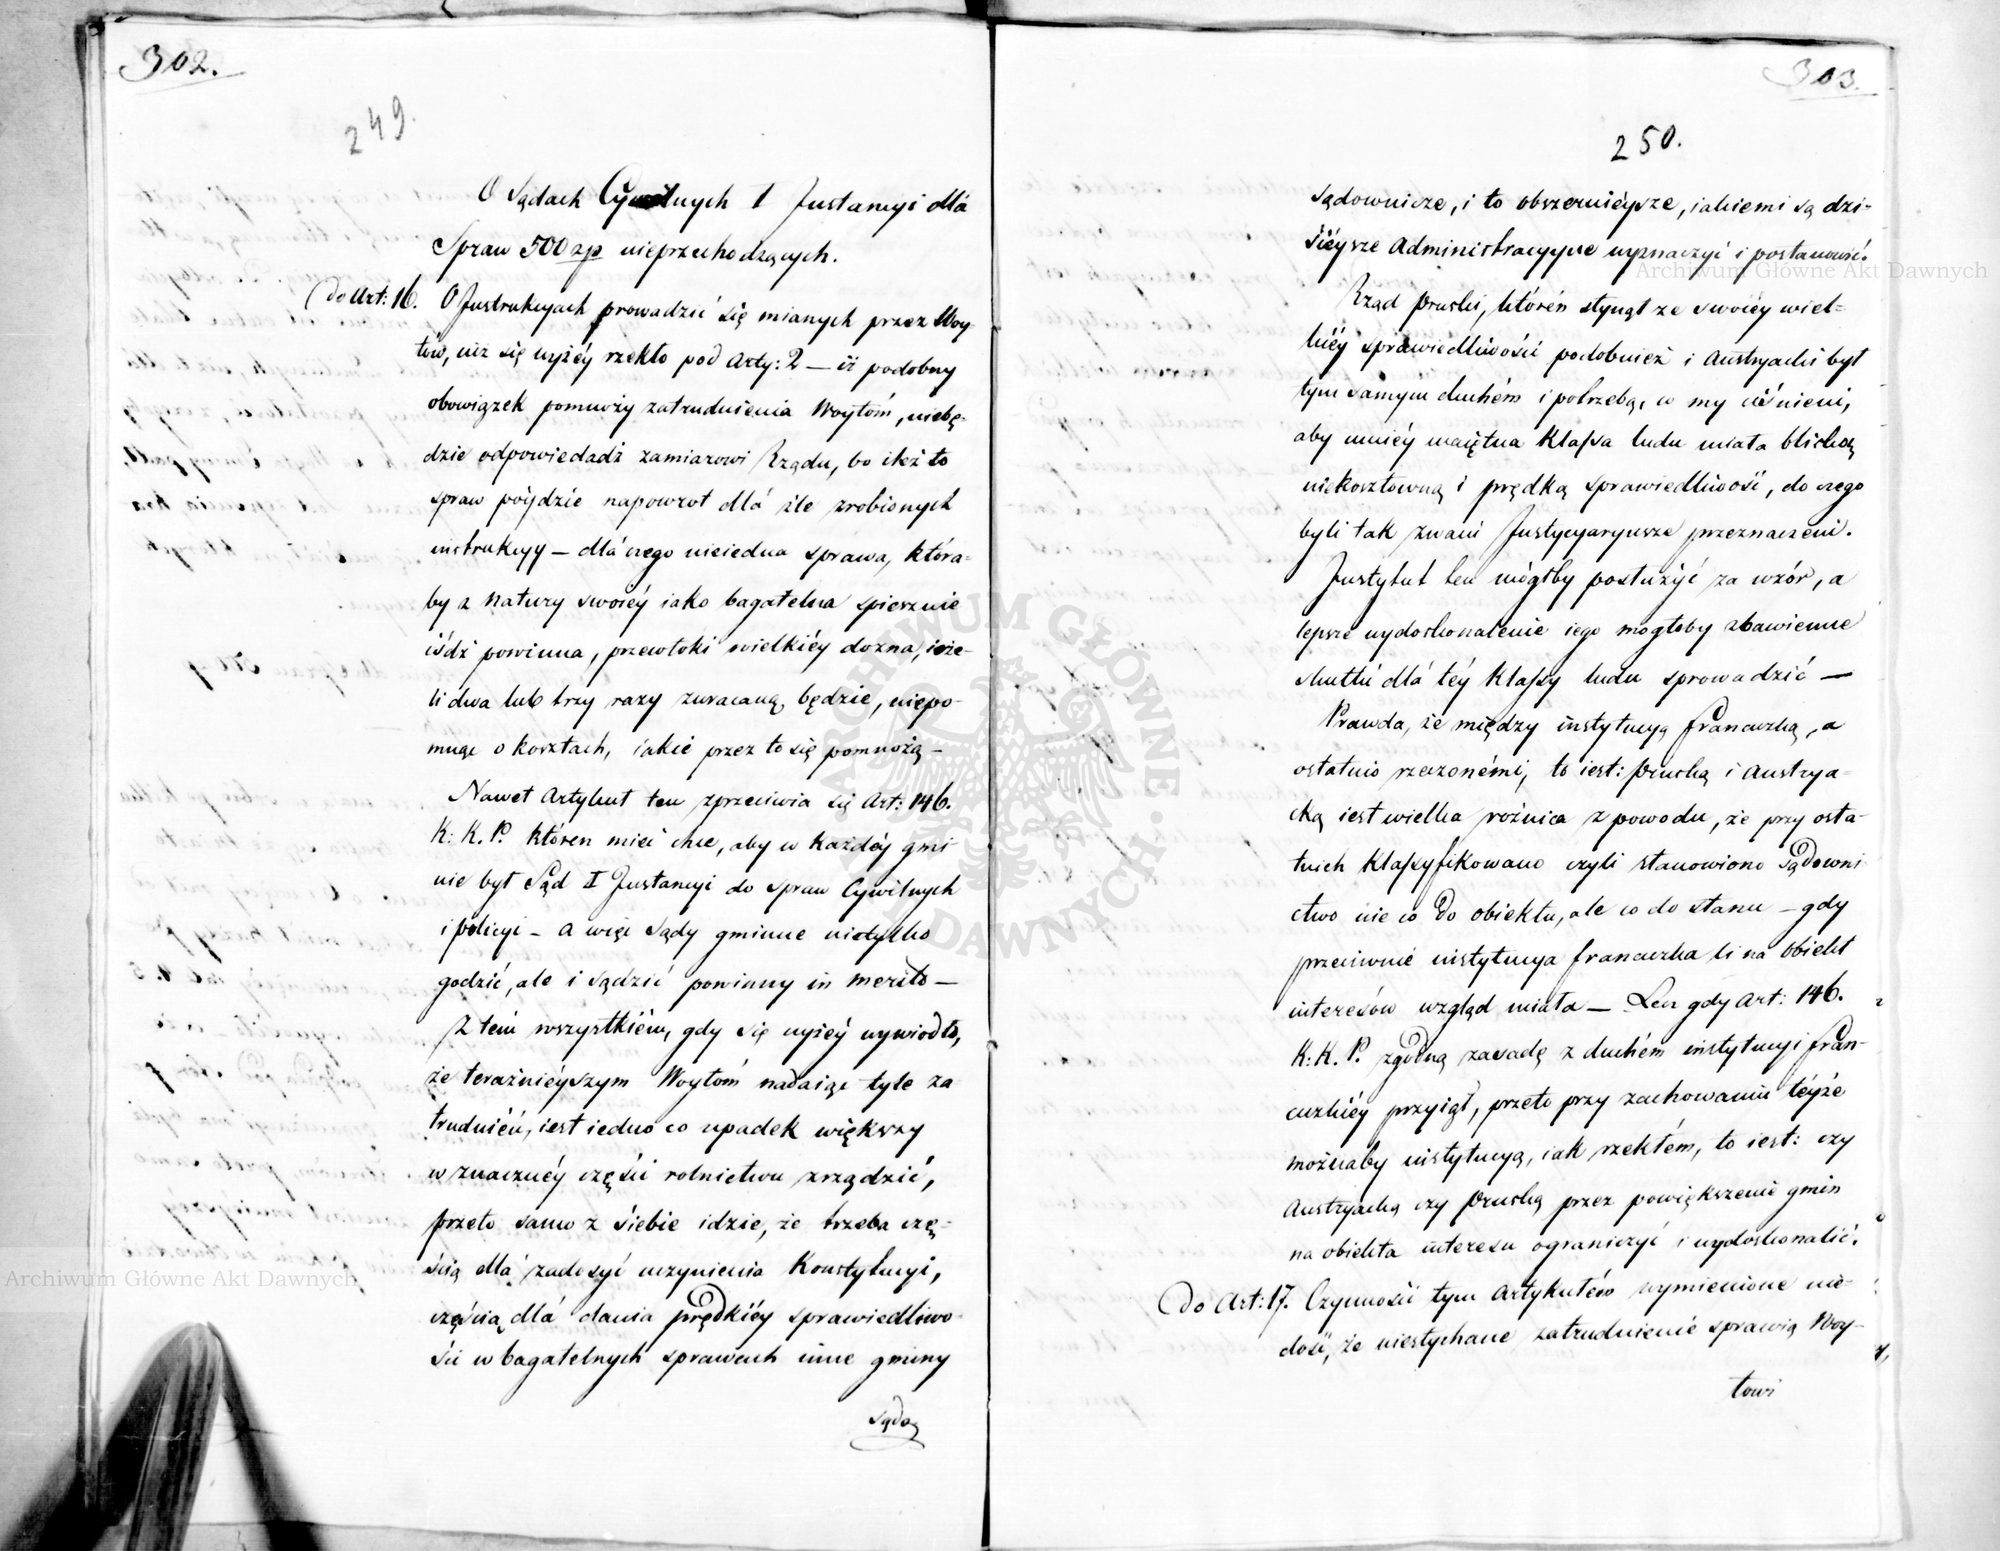 302.
249.
O Sądach Cywilnych I Instancyi dlá
Spraw 500 zp nieprzechodzących.
Do Art: 16. O Instrukcyach prowadzić się mianych przez Woy-
tow, niż się wyżéy rzekło pod Arty: 2 — iż podobny
obowiązek pomnoży zatrudnienia Woytóm, niebę-
dzie odpowiedadź zamiarowi Rządu, bo ileż to
spraw póydzie napowrot dlá źle zrobionych
instrukcyy — dláczego nieiedna sprawa, która-
by z natury swoiéy iako bagatelna spiesznie
iśdź powinna, przewłoki wielkiéy dozna, ieże-
li dwa lub trzy razy zwracaną będzie, niepo-
mnąc o kosztach, iakie przez to się pomnożą —
Nawet Artykuł ten sprzeciwia się Art: 146.
K: K. P. któren mieć chce, aby w każdéy gmi
nie był Sąd I Instancyi do spraw Cywilnych
i policyi — a więc Sądy gminne nietylko
godzić, ale i sądzić powinny in merito —
Z tém wszystkiém, gdy się wyżéy wywiodło,
że teraźnieyszym Woytóm nadaiąc tyle za
trudnień, iest iedno co upadek większy
w znacznéy części rolnictwu zrządzić,
przeto samo z siebie idzie, że trzeba czę-
ścią dlá zadosyć uczynienia Konstytucyi,
częścią dlá dania prędkiéy sprawiedliwo-
ści w bagatelnych sprawach inne gminy
Sądo
303.
250.
sądownicze, i to obszernieysze, iakiemi są dzi-
siéysze Administracyyne wyznaczyć i postanowić.
Rząd Pruski, którén słynął ze swoiéy wiel-
kiéy sprawiedliwości podobnież i Austryacki był
tym samym duchém i potrzebą, co my ciśnieni,
aby mniéy maiętna Klassa ludu miała bliską
niekosztowną i prędką sprawiedliwość, do czego
byli tak zwani Justycyaryusze przeznaczeni.
Instytut ten mógłby posłużyć za wzór, a
lepsze wydoskonalenie iego mogłoby zbawienne
skutki dlá téy Klassy ludu sprowadzić —
Prawda, że między instytucyą francuzką, a
ostatnio rzeczonémi, to iest: pruską i Austrya-
cką iest wielka rożnica z powodu, że przy osta-
tnich Klassyfikowano czyli stanowiono Sądowni
ctwo nie co do obiektu, ale co do stanu — gdy
przeciwnie instytucya francuzka li na obiekt
interesów wzgląd miała — Lecz gdy Art: 146.
K: K. P. zgodną zasadę z duchém instytucyi fran-
cuzkiéy przyiął, przeto przy zachowaniu téyże
możnaby instytucyą, iak rzekłém, to iest: czy
Austryacką czy Pruską przez powiększenie gmin
na obiekta interesu ograniczyć i wydoskonalić.
Do Art: 17. Czynności tym Artykułém wymienione nie-
dość, że niesłychane zatrudnienie sprawią Woy-
towi
Archiwum Główne Akt Dawnych
Archiwum Główne Akt Dawnych
ARCHIWUM GŁÓWNE AKT DAWNYCH